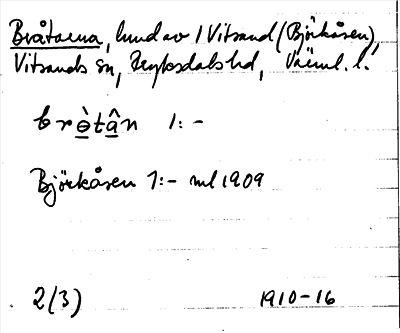 Bråtarna, hmd av 1 Vitsand (Björkåsen),
Vitsands sn, Fryksdals hd, Värml. l.
bròtân 1:-
Björkåsen 1:- ml 1909
2(3) 1910-16